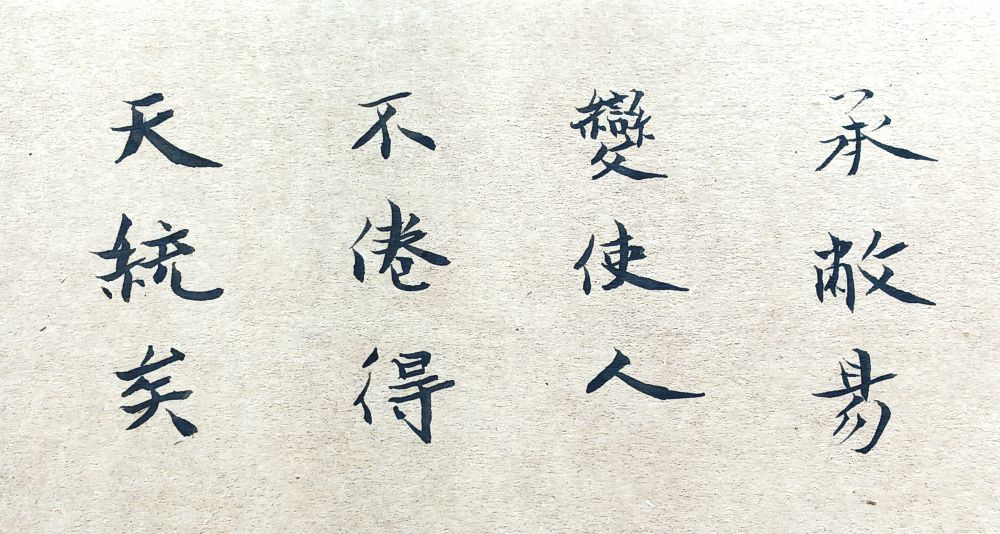 承敝易
變使人
不倦得
天統矣